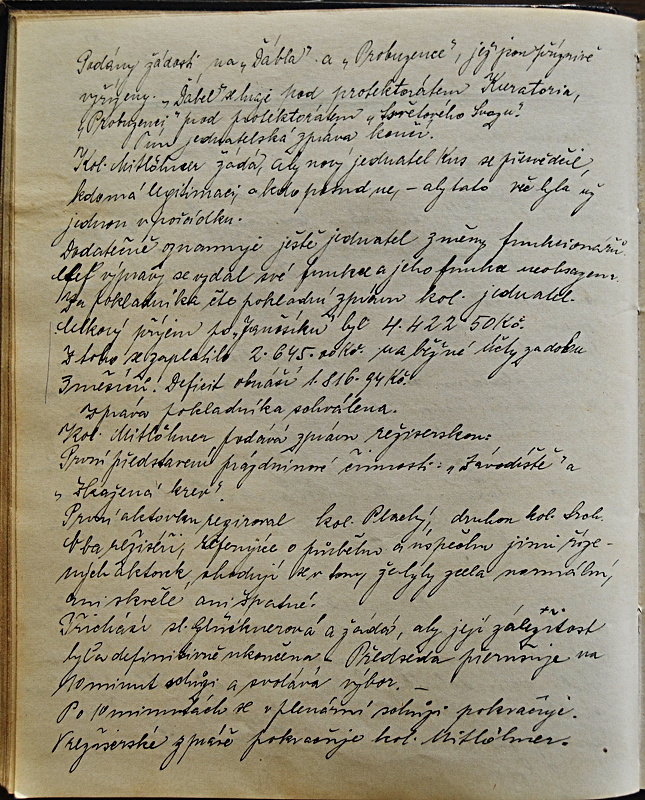 Podány žádosti na „Ďábla" a „Probuzence", jež jsou příznivě
vyřízeny. „Ďábel" se hraje pod protektorátem Kuratoria,
„Probuzenci" pod protektorátem „Světového Svazu".
Tím jednatelská zpráva končí.
Kol. Mitlöhner žádá, aby nový jednatel Kus se přesvědčil,
kdo má legitimaci, a kdo pernd ne, – aby tato věc byla už
jednou v pořádku.
Dodatečně oznamuje ještě jednatel změny funkcionářů.
Šéf výpravy se vzdal své funkce a jeho funkce neobsazena.
Za pokladníka čte pokladní zprávu kol. jednatel.
Celkový příjem za „Jánošíka" byl 4.422.50 Kč.
Z toho se zaplatilo 2.645.00 Kč. na běžné účty za dobu
3 měsíců! Deficit obnáší 1.816.94 Kč.
Zpráva pokladníka schválena.
Kol. Mitlöhner podává zprávu režiserskou:
První představení prázdninové činnosti: „Závodiště" a
„Zkažená krev".
První aktovku režíroval kol. Plachý, druhou kol.
Oba režiséři, referujíce o průběhu a úspěchu jimi říze-
ných aktovek, shodují se v tom, že byly zcela normální,
ani skvělé ani špatné.
Přichází sl. Glücknerová a žádá, aby její záležitost
byla definitivně ukončena. Předseda přerušuje na
10 minut schůzi a svolává výbor. –
Po 10 minutách se v plenární schůzi pokračuje.
V režiserské zprávě pokračuje kol. Mitlöhner.